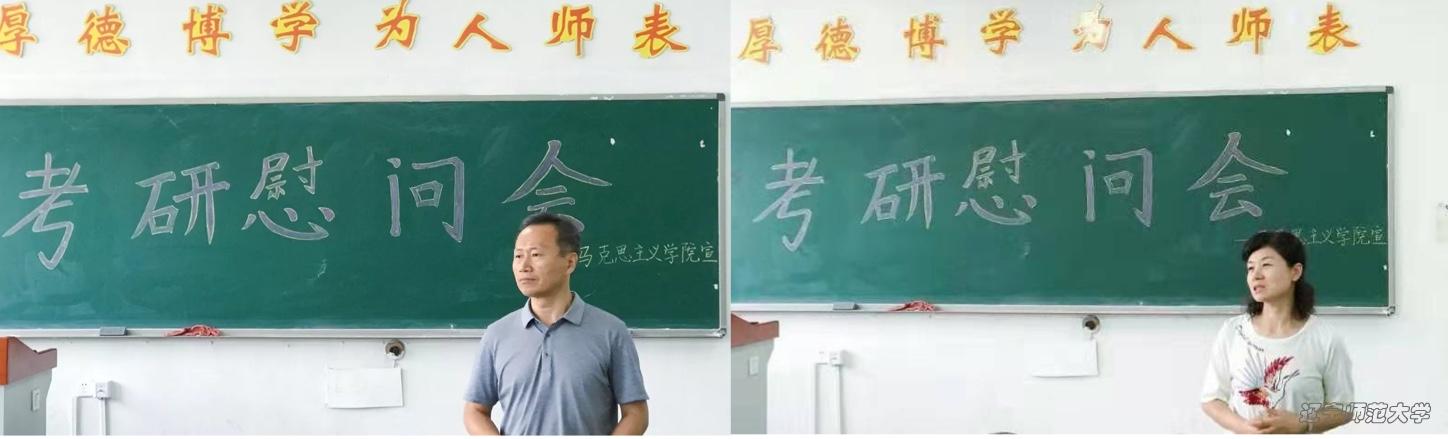 厚德博学为人师表
考研慰问会
马克思主义学院宣
厚德博学为人师表
考研慰问会
思主义学院宣
辽宁师范大学